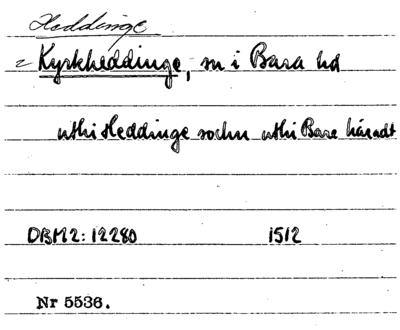 Heddinge
= Kyrkheddinge, sn i Bara hd
uthi Heddinge sochn uthi Bare häradt
DBM 2: 12280 1512
Nr 5536.